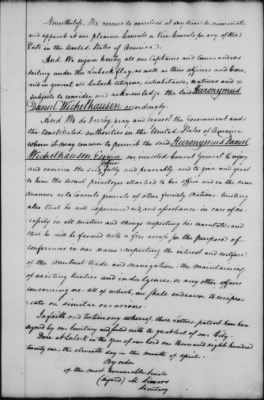 Nevertheless, We reserve to ourselves at any time to nominate
and appoint at our pleasure Consuls or Vice Consuls for any of the
State in the United States of America.
And We enjoin hereby all our Captains and Commanders
sailing under the Lubeck flag, as well as their officers and Crew,
and in general all Lubeck citizens, inhabitants, natives and
subjects to consider and acknowledge the said Hieronymus
Daniel Wichelhausen accordingly.
And We do hereby pray and request the Government and
the Constituted authorities in the United States of America
whom it may concern to permit the said Hieronymus Daniel
Wichelhausen Esquire our invested Consul General to enjoy
and exercise the said office fully and peaceably and to give and grant
to him the usual privileges attached to his office and in the same
manner as to Consuls general of other friendly Nations: trusting
also that he will experience aid and assistance in case of ne-
cessity in all matters and things respecting his mandate: and
that he will be favored with a free access for the purpose of
conference in our name respecting the interest and welfare
of the mutual trade and navigation, the maintaining
of existing treaties and indulgences, or any other affairs
concerning us; all of which, we shall endeavor to recipro-
cate on similar occasions.
In faith and testimony whereof, these letters patent have been
signed by our Secretary and sealed with the great seal of our City.
Done at Lubeck in the year of our Lord one thousand eight hundred
twenty one, the eleventh day in the month of April.
By order
of the most honourable Senate
(signed)
Secretary